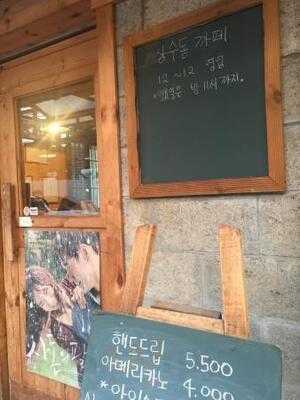 상수동 까페
12 ~ 12 영업
*일요일은 밤 11시 까지.
핸드드립 5.500
아메리카노 4.000